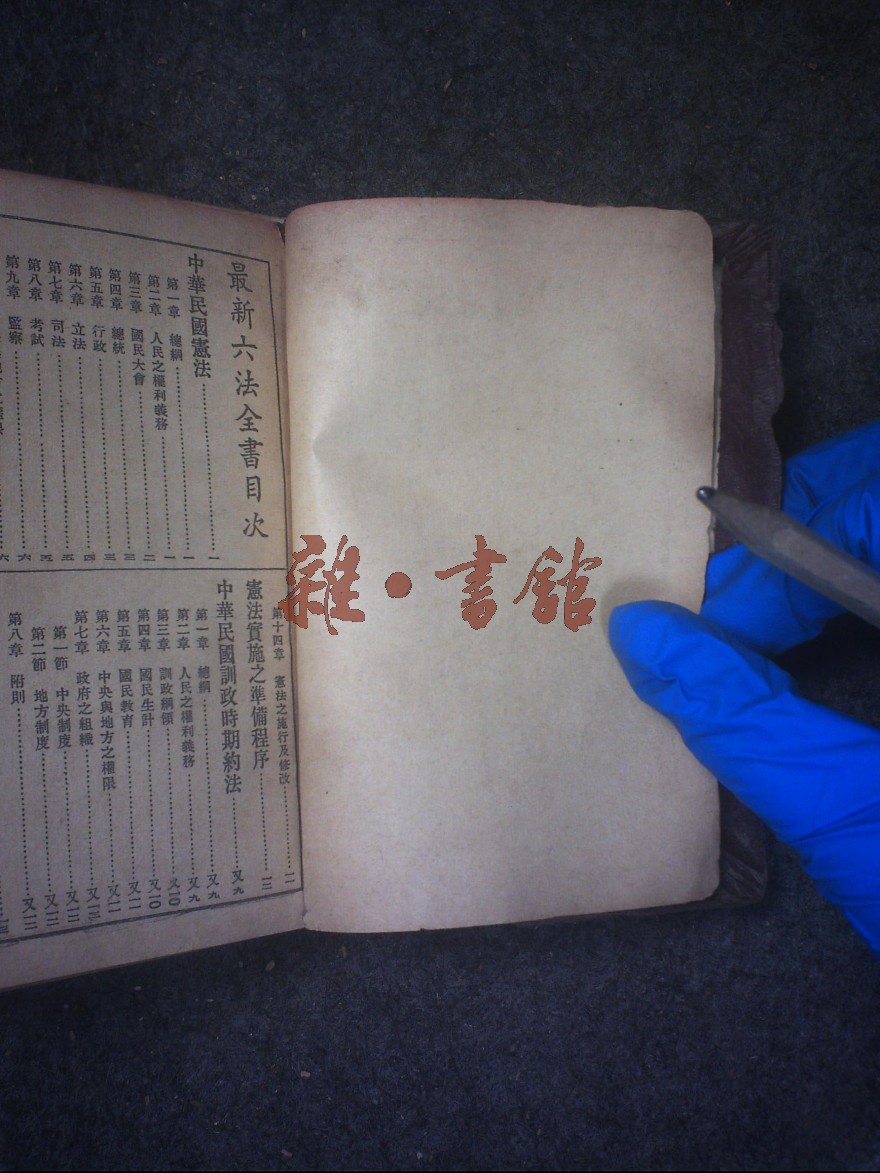 最新六法全書目次
中華民國憲法 一
第一章 總綱 一
第二章 人民之權利義務 一
第三章 國民大會 二
第四章 總統 三
第五章 行政 三
第六章 立法 四
第七章 司法 五
第八章 考試 五
第九章 監察 六
第十四章 憲法之施行及修改 一二
憲法實施之準備程序 一三
中華民國訓政時期約法 又九
第一章 總綱 又九
第二章 人民之權利義務 又九
第三章 訓政綱領 又10
第四章 國民生計 又10
第五章 國民教育 又一一
第六章 中央與地方之權限 又一一
第七章 政府之組織 又一二
第一節 中央制度 又一二
第二節 地方制度 又一二
第八章 附則 又一二
雜·書館